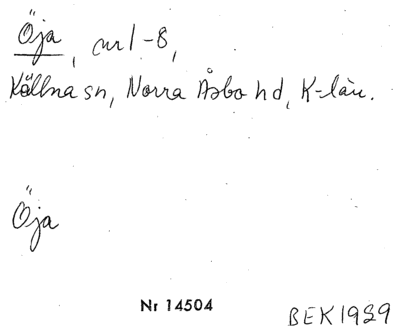 Öja, nr 1-8,
Källna sn, Norra Åsbo hd, K-län.
Öja
Nr 14504
BEK 1929